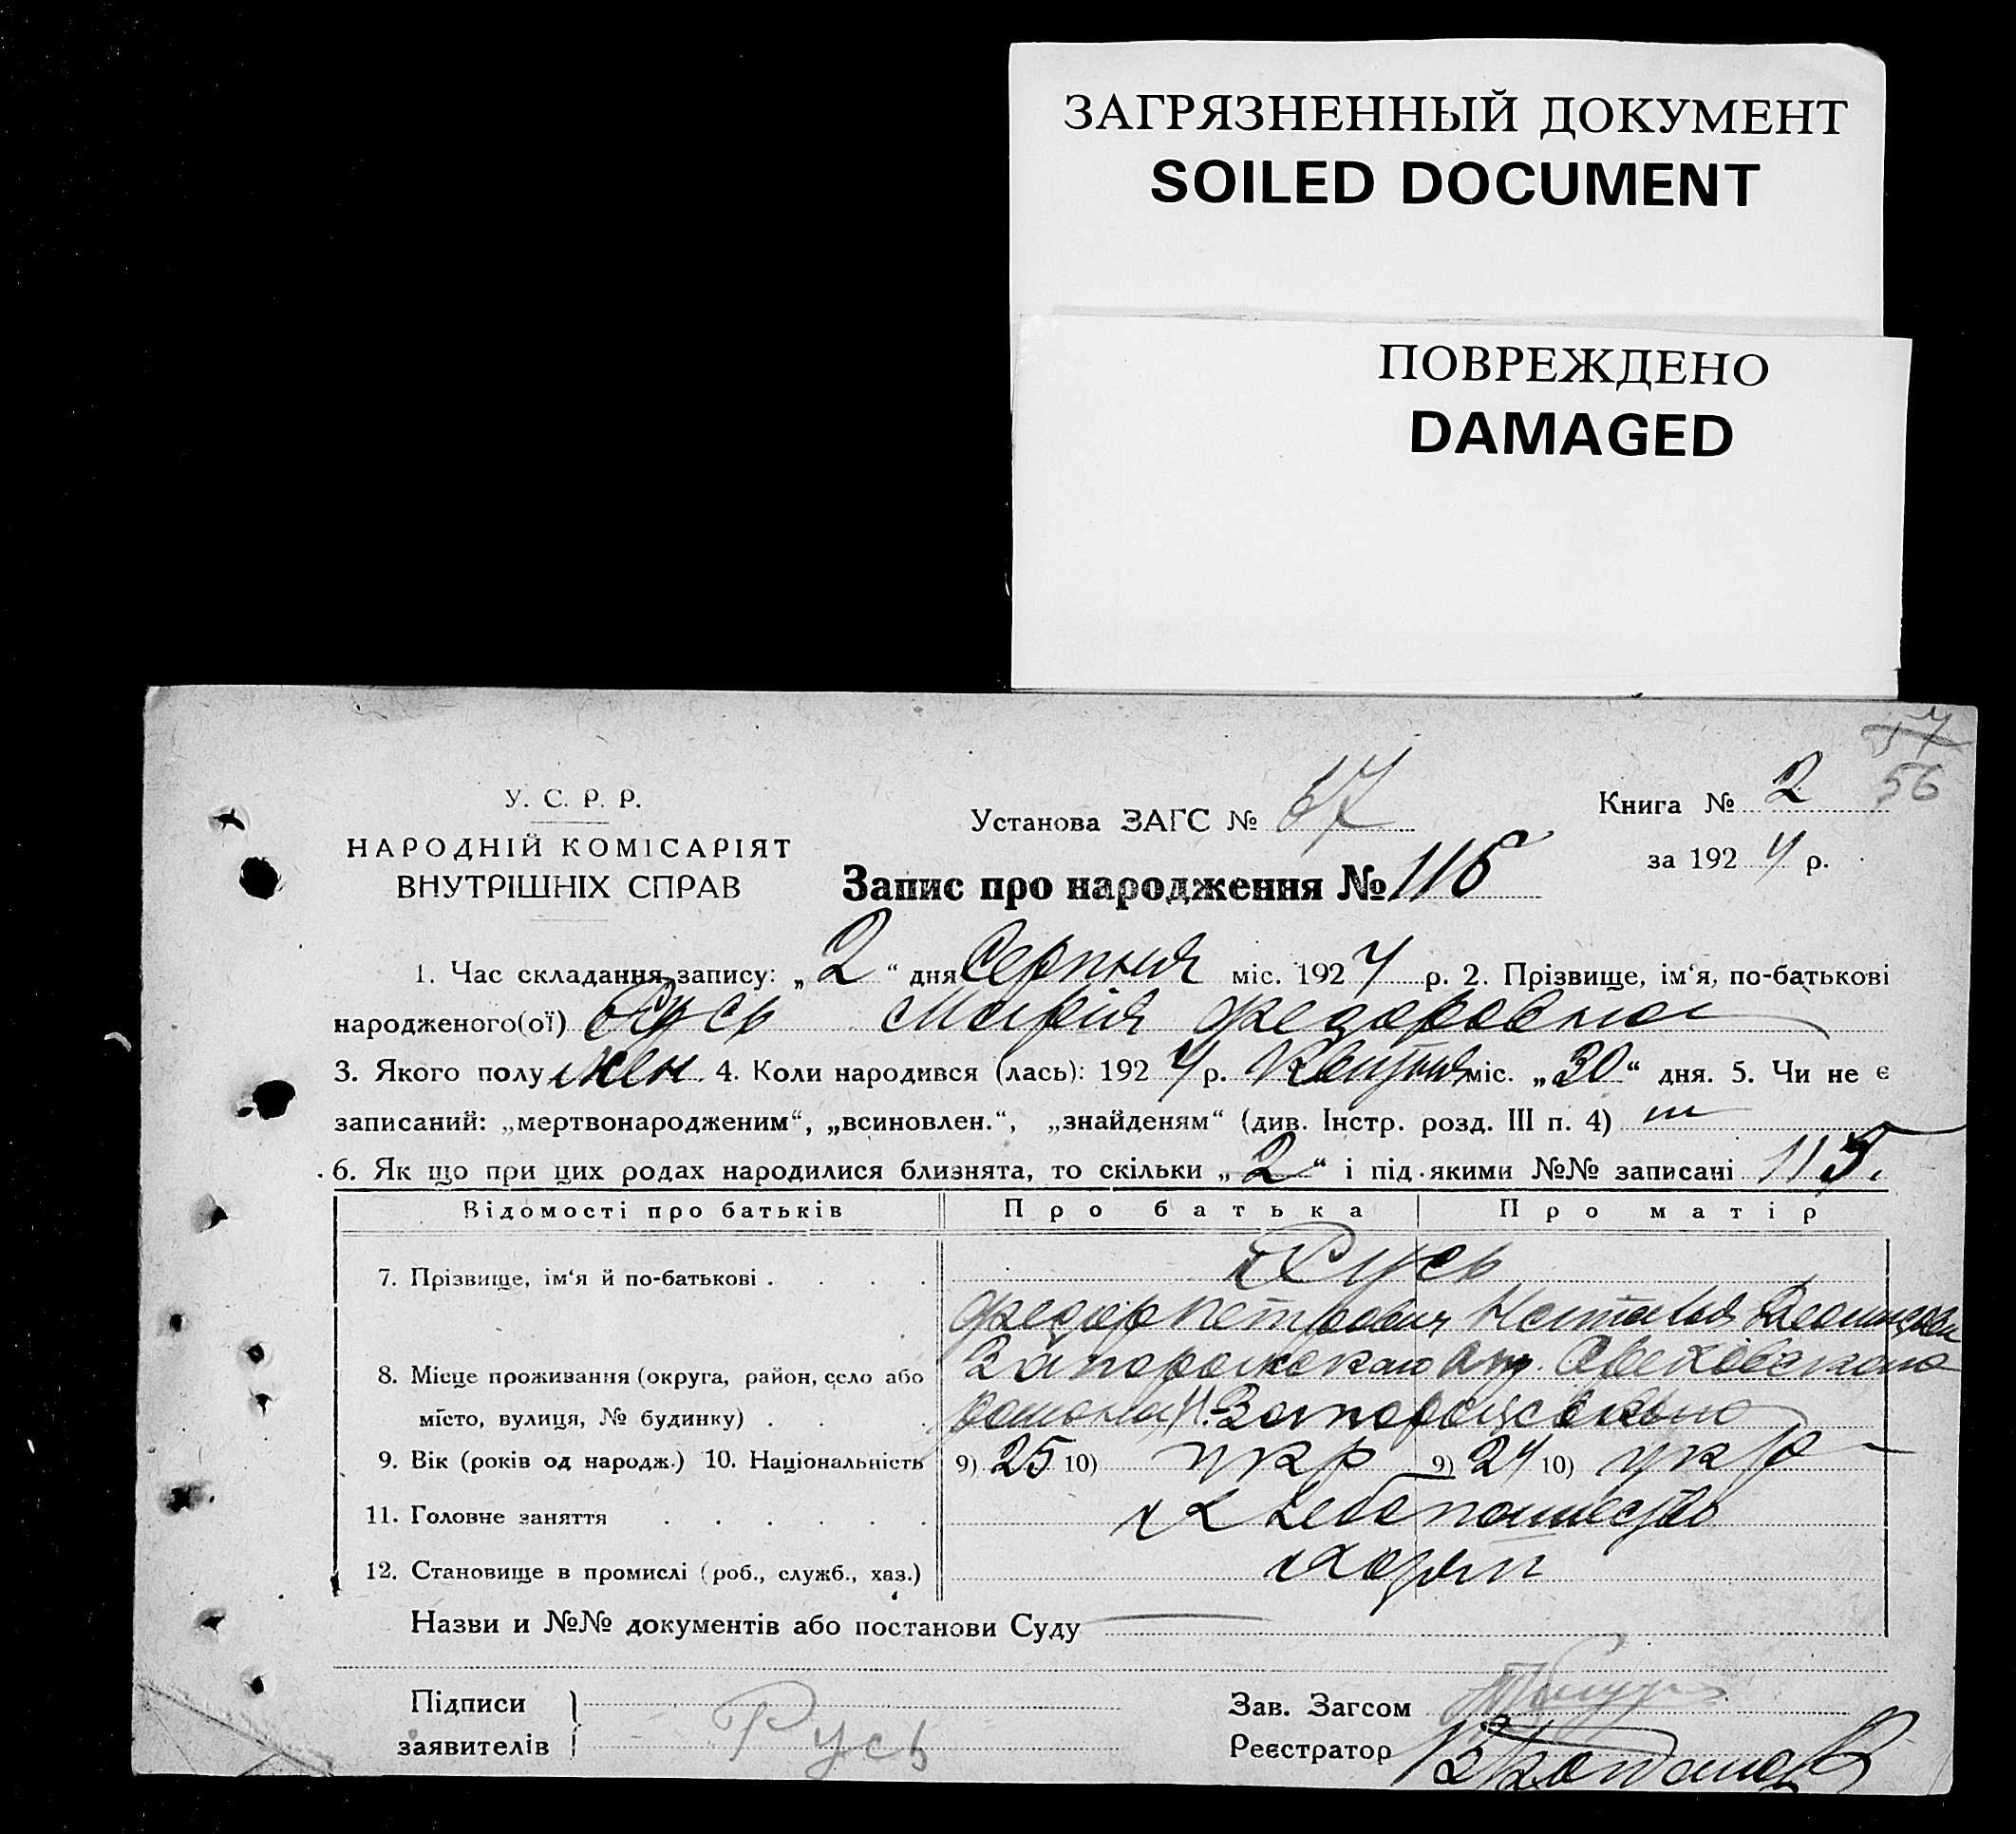 ЗАГРЯЗНЕННЫЙ ДОКУМЕНТ
SOILED DOCUMENT
ПОВРЕЖДЕНО
DAMAGED
57
56
У. С. Р. Р.
НАРОДНІЙ КОМІСАРІЯТ
ВНУТРІШНІХ СПРАВ
Установа ЗАГС № 57
Книга № 2
за 1924 р.
Запис про народження № 116
1. Час складання запису: „2“ дня Серпня міс. 1924 р. 2. Прізвище, ім‘я, по-батькові
народженого(ої) Русь Марія Федоровна
3. Якого полу жен. 4. Коли народився (лась): 1924 р. міс. „30“ дня. 5. Чи не є
записаний: „мертвонародженим“, „всиновлен.“, „знайденям“ (див. Інстр. розд. III п. 4)
6. Як що при цих родах народилися близнята, то скільки „2“ і під якими №№ записані 115.
Відомості про батьків Про батька Про матір
7. Прізвище, ім‘я й по-батькові . . . . Русь
Федор Петрович Наталья
8. Місце проживання (округа, район, село або Запорожского окр.
місто, вулиця, № будинку) . . .
9. Вік (років од народж.) 10. Національність 9) 25 10) укр 9) 24 10) укр
11. Головне заняття . . . . . . Хлебопашество
12. Становище в промислі (роб., служб., хаз.)
Назви и №№ документів або постанови Суду
Підписи
заявителів Русь
Зав. Загсом
Реєстратор